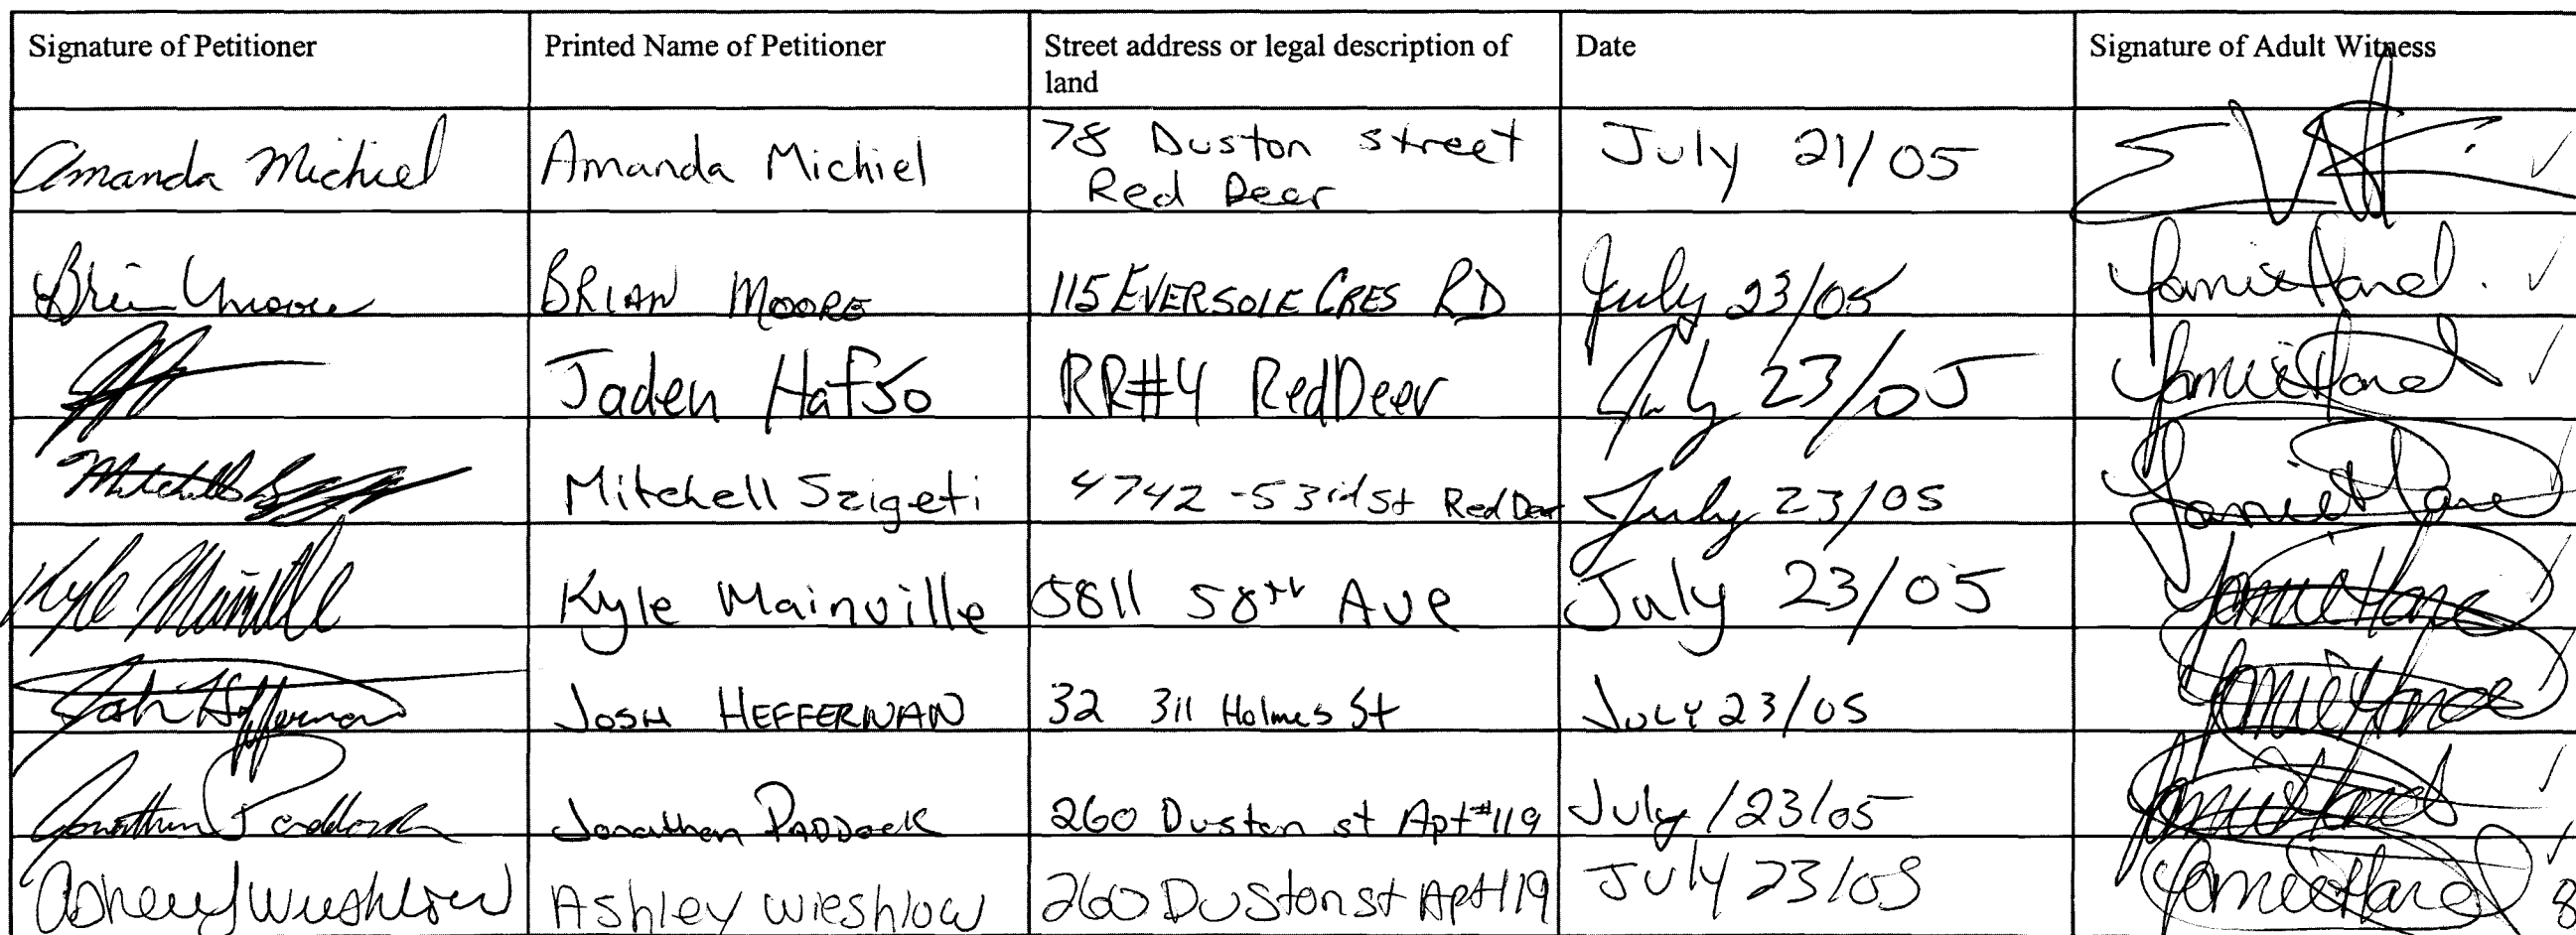 Signature of Petitioner Printed Name of Petitioner Street address or legal description of Date Signature of Adult Witness
land
Amanda Michiel Amanda Michiel 78 Duston street July 21/05
Red Deer
Brian Moore BRIAN MOORE 115 EVERSOLE CRES RD July 23/05 Jamie Hand
Jaden Hafso RR#4 RedDeer July 23/05 Jamie Hand
Mitchell Mitchell Szigeti 4742 -53rd St Red Deer July 23/05 Jamie Hand
Kyle Mainville Kyle Mainville 5811 58th Ave July 23/05
Josh Heffernan JOSH HEFFERNAN 32 311 Holmes St JULY 23/05
Jonathan Paddock Jonathan PADDOCK 260 Duston st Apt#119 July /23/05
Ashley Wieshlow Ashley wieshlow 260 Duston st Apt#119 July 23/05
8